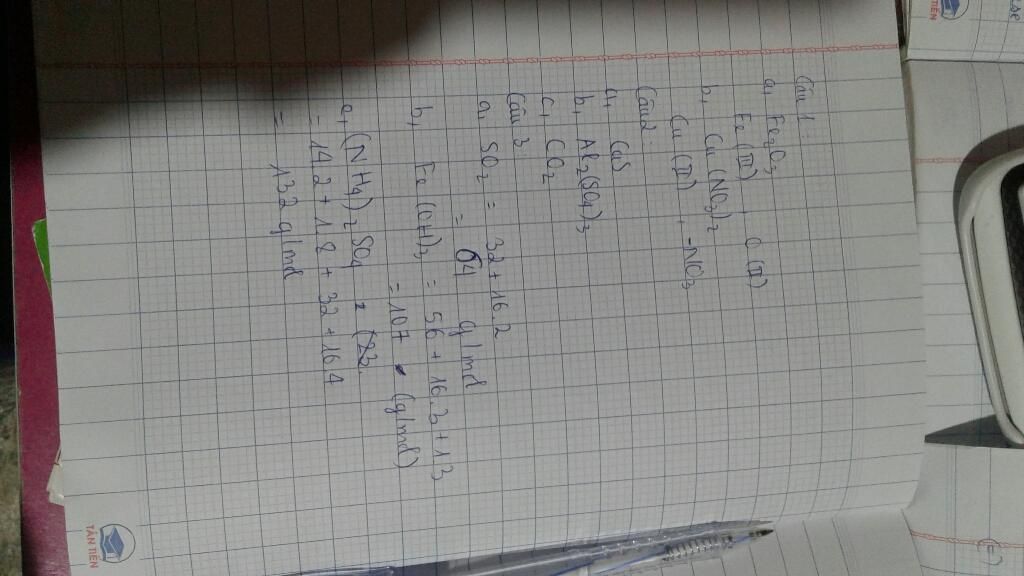 Câu 1:
a, Fe2O3
Fe (III), O (II)
b, Cu (NO3)2
Cu (II), -NO3
Câu 2:
a, CaS
b, Al2(SO4)3
c, CO2
Câu 3:
a, SO2 = 32 + 16.2
= 64 g/mol
b, Fe (OH)3 = 56 + 16.3 + 1.3
= 107 (g/mol)
a, (NH4)2 SO4 =
= 14.2 + 1.8 + 32 + 16.4
= 132 g/mol
TÂN TIẾN